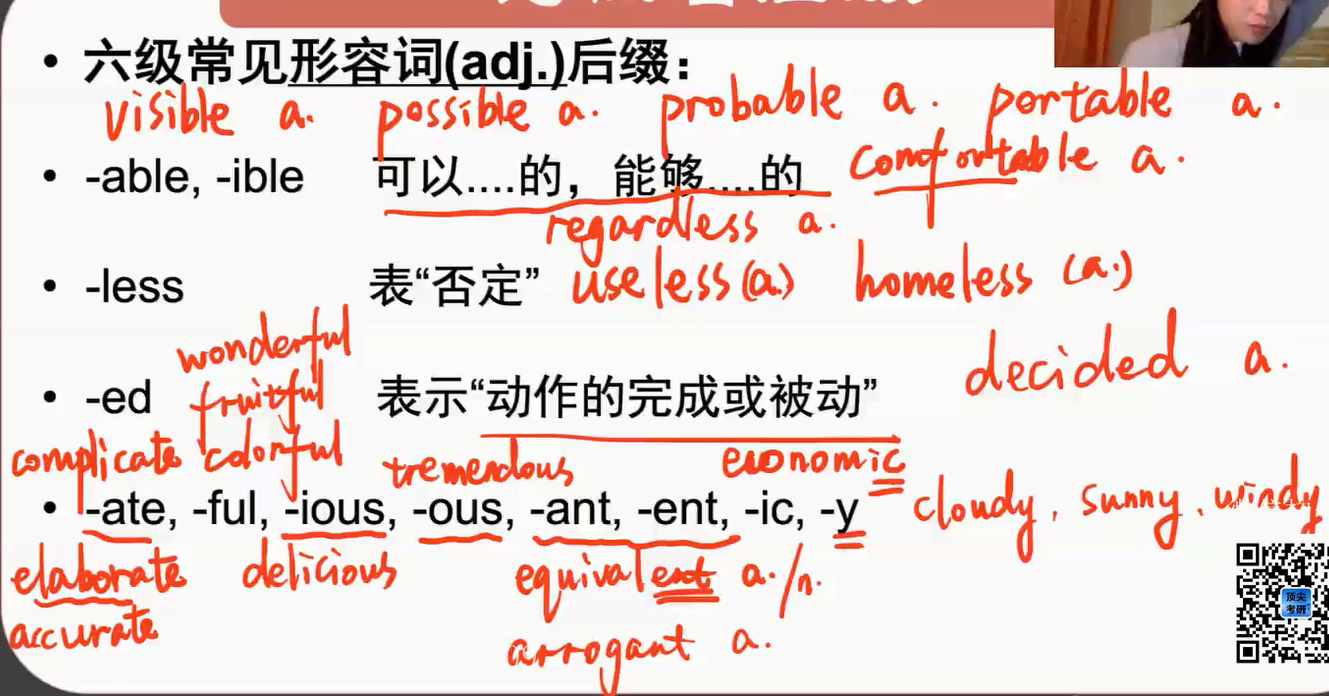 • 六级常见形容词(adj.)后缀：
visible a. possible a. probable a. portable a.
• -able, -ible 可以....的，能够....的 comfortable a.
regardless a.
• -less 表“否定” useless (a.) homeless (a.)
wonderful
• -ed fruitful 表示“动作的完成或被动” decided a.
complicate colorful tremendous economic
• -ate, -ful, -ious, -ous, -ant, -ent, -ic, -y cloudy, sunny, windy
elaborate delicious equivalent a./n.
accurate arrogant a.
顶尖
考研